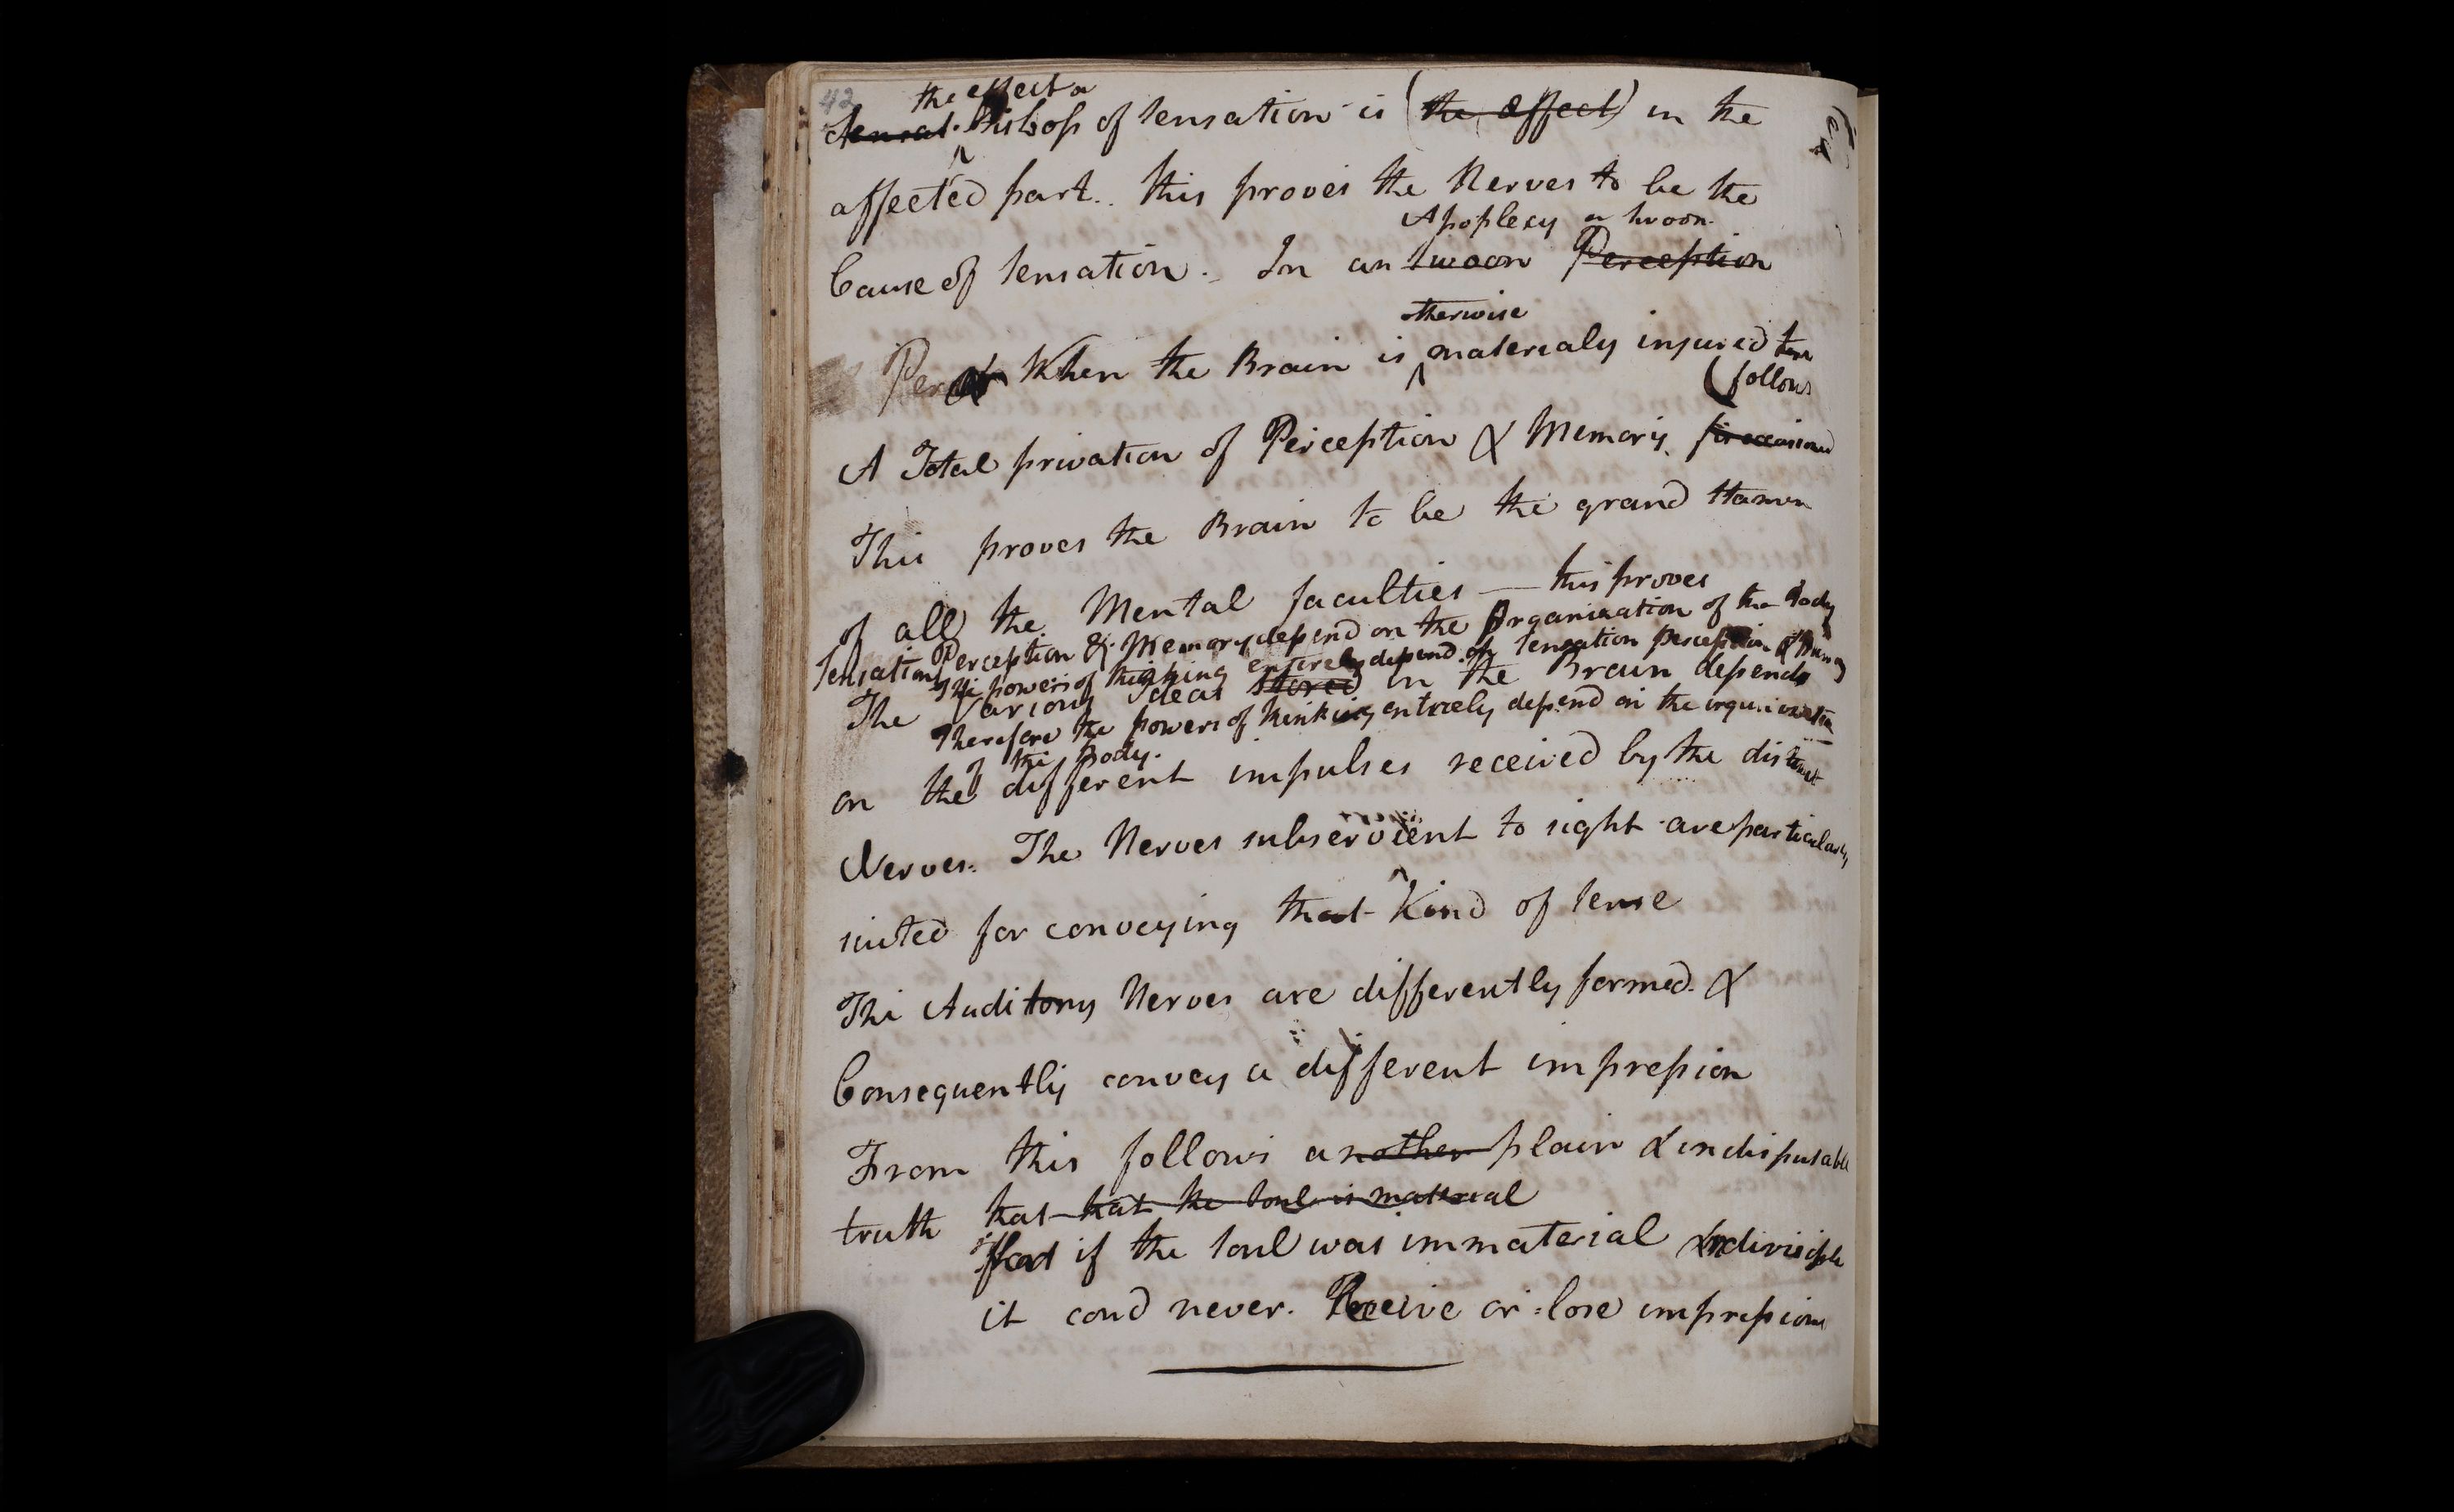 42
the effect a
sensat. Misbof of sensation is (the effect) in the
affected part. this proves the Nerves to be the
Apoplexy or swoon.
Cause of sensation. In an swoon Perception
otherwise
Per or When the Brain is materialy injured there
(follows
A Total privation of Perception & Memory. is occasioned
This proves the Brain to be the grand Stamen
of all the Mental faculties — this proves
Sensation Perception & Memory depend on the Organization of the Body
The powers of thinking entirely depend on sensation perception & Memory
The Various Ideas stored in the Brain depends
Therefore the powers of thinking entirely depend on the organization
of the Body.
on the different impulses received by the distinct
Nerves. The Nerves subservient to sight are particularly
suited for conveying that Kind of sense
The Auditory Nerves are differently formed. &
Consequently convey a different impression
From this follows another plain & indisputable
truth that that the soul is material
that if the soul was immaterial & indivisible
it coud never. Receive or lose impressions